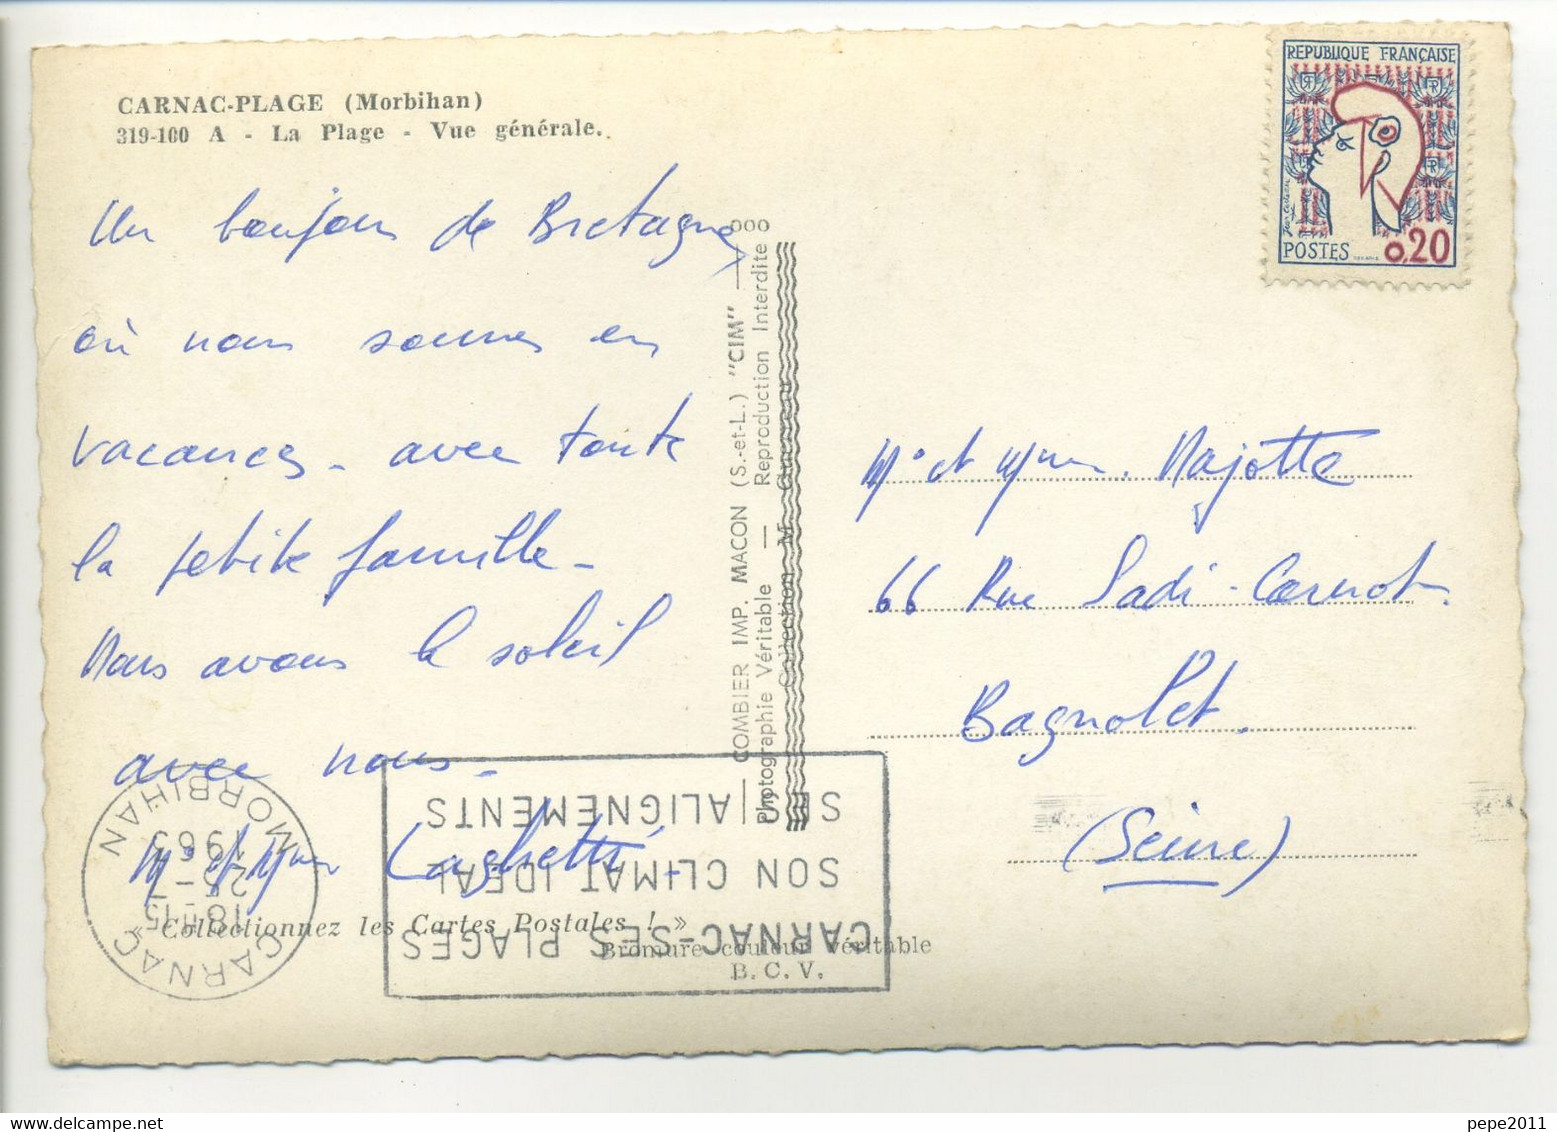 CARNAC-PLAGE (Morbihan)
319-100 A - La Plage - Vue générale.
Un bonjour de Bretagne
où nous sommes en
vacances - avec toute
la petite famille -
Nous avons le soleil
avec nous -
Mr et Mme Laghetti.
« Collectionnez les Cartes Postales ! »
Bromure couleur véritable
B. C. V.
COMBIER IMP. MACON (S.-et-L.) "CIM"
Photographie Véritable — Reproduction Interdite
Collection M.
REPUBLIQUE FRANÇAISE
POSTES 0,20
Mr et Mme. Najotte
66 Rue Sadi-Carnot.
Bagnolet.
(Seine)
CARNAC
MORBIHAN
18H15
25-7
1963
CARNAC-SES PLAGES
SON CLIMAT IDEAL
SES ALIGNEMENTS
pepe2011